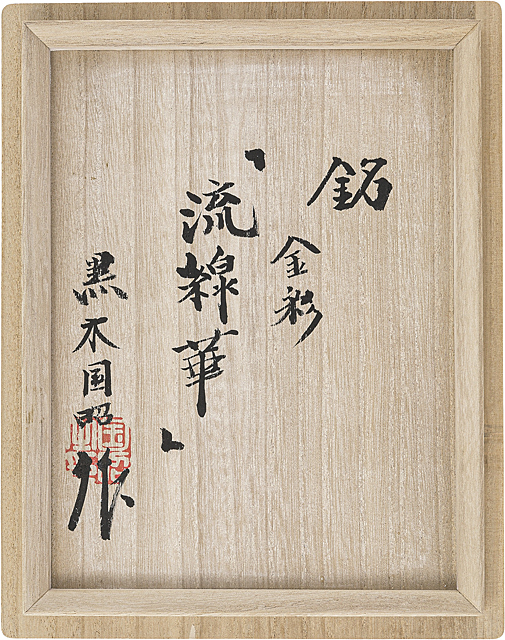 銘
金彩
「流線華」
黒木国昭作